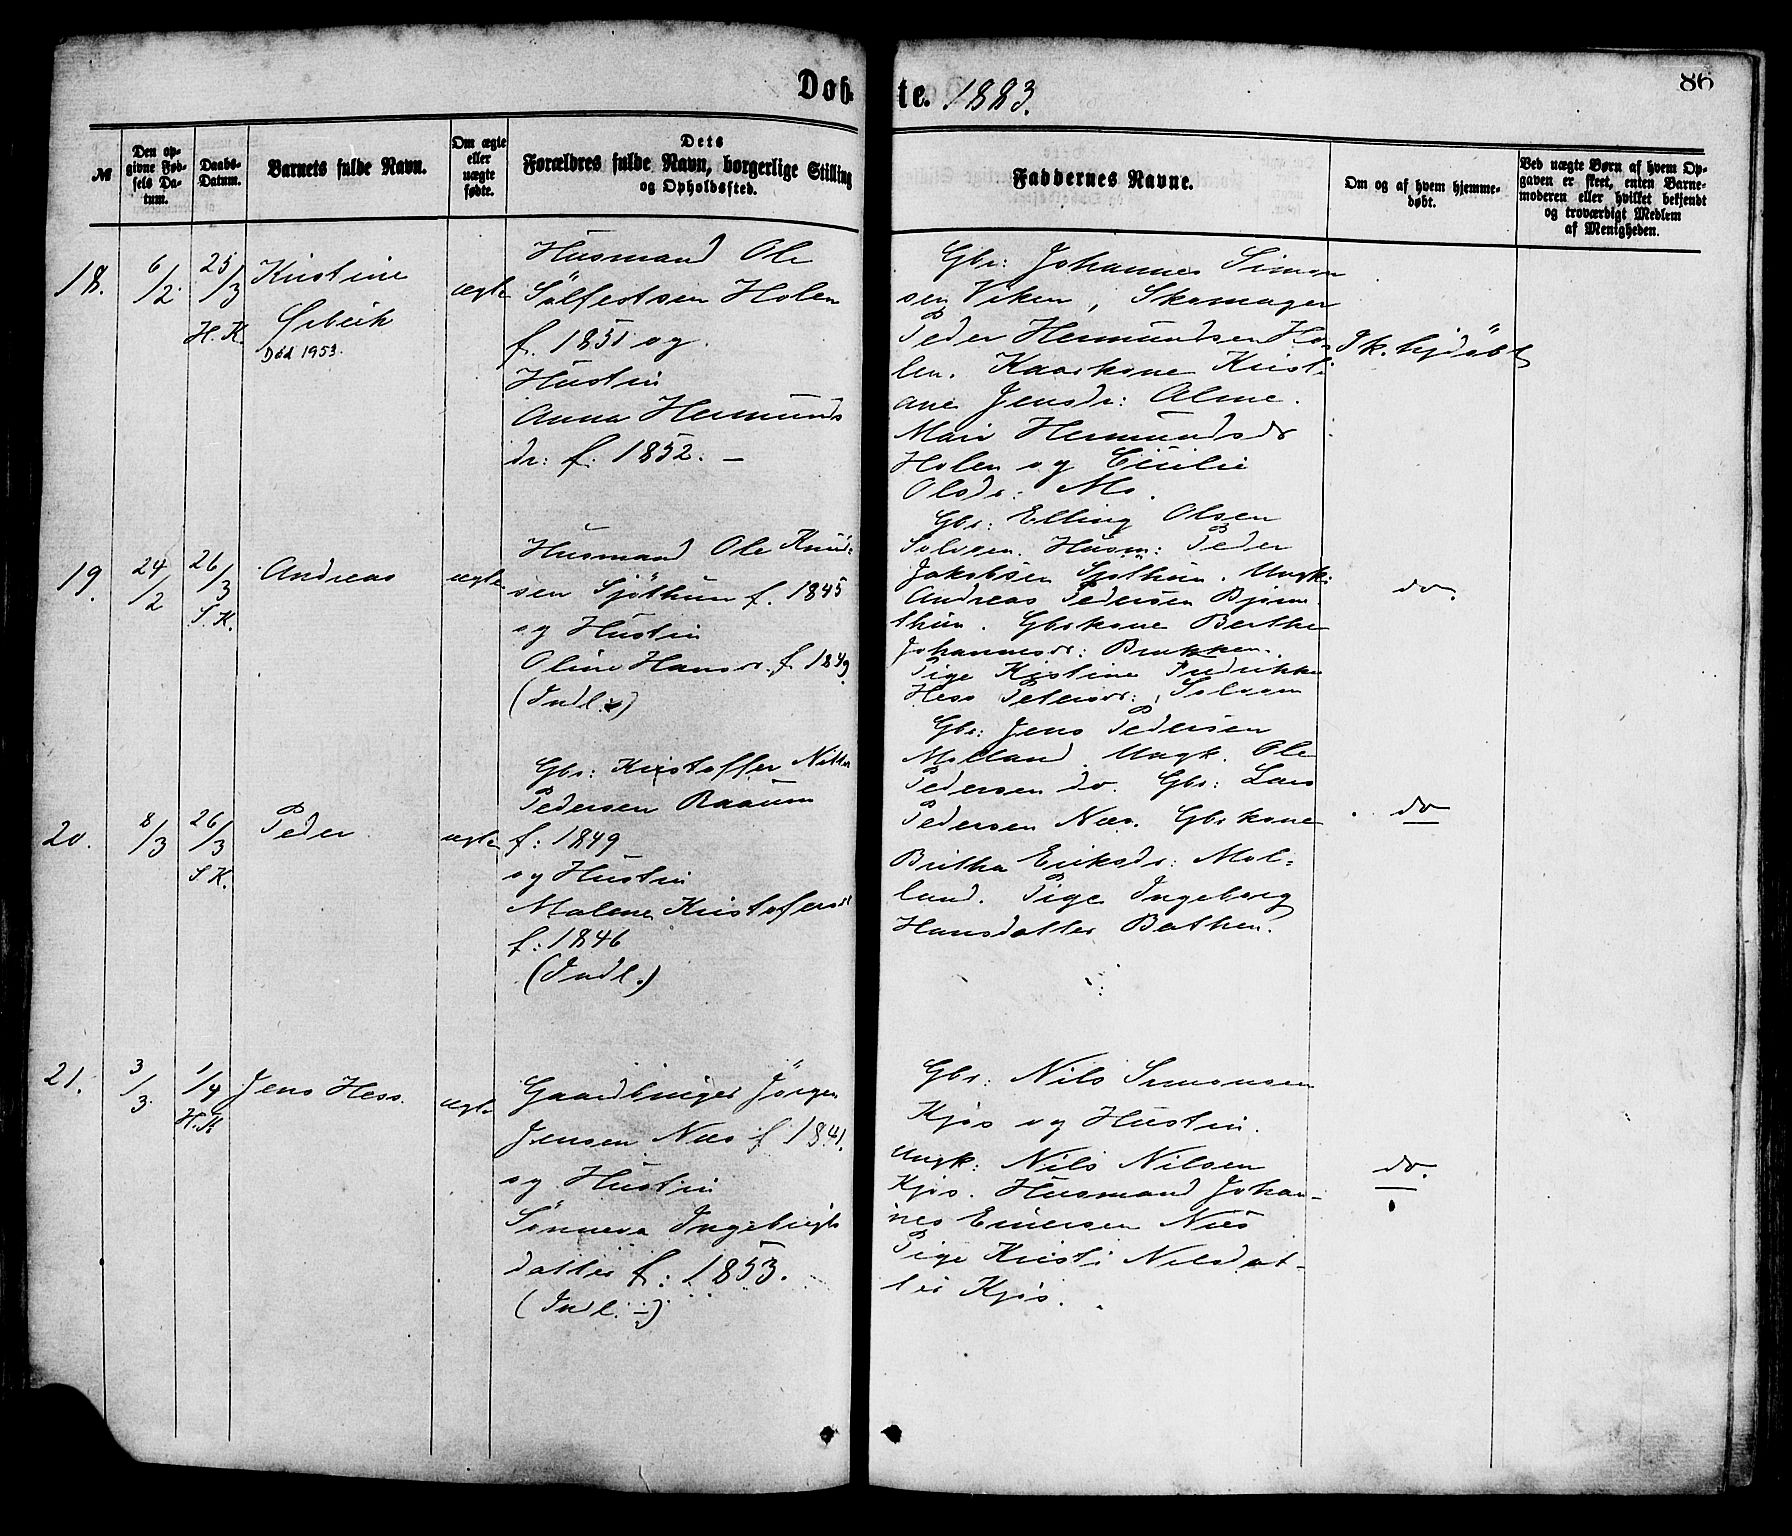 Døb-
te. 1883.
86
№
Den op-
givne Fød-
sels Da-
tum.
Daabs-
Datum.
Barnets fulde Navn.
Om ægte
eller
uægte
fødte.
Dets
Forældres fulde Navn, borgerlige Stilling
og Opholdssted.
Faddernes Navne.
Om og af hvem hjemme-
døbt.
Ved uægte Børn af hvem Op-
gaven er skeet, enten Barne-
moderen eller hvilket bekjendt
og troværdigt Medlem
af Menigheden.
18.
6/2.
25/3
H. K.
Kristine
Død 1953.
ægte
Husmand Ole
Sølfestsen Holen
f. 1851 og
Hustru
Anna Hermunds
dr: f: 1852. —
Gbr: Johannes Simon
sen Viken, Skomager
Peder Hermundsen Ho-
len. Kaarkone Kristi
ane Jensdr: Alme.
Mari Hermundsdr
Holen og Cicilie
Olsdr: Mo.
Ik. hjdøbt
19.
24/2
26/3
S. K.
Andreas
ægte
Husmand Ole Knud-
sen Sjøthun f. 1845
og Hustru
Oline Hansdr. f. 1849.
(Indl:)
Gbr: Elling Olsen
Solsen. Husm: Peder
Jakobsen Sjøthun. Ungk:
Andreas Pedersen Bjørn-
thun. Gbrkone Berthe
Johannesdr: Brekken.
Pige Kistine Fredrikke
Hess Petersdr:
do.
20.
8/3
26/3
S. K.
Peder
ægte
Gbr: Kristoffer
Pedersen Raaum
f: 1849
og Hustru
Malene Kristofersdt
f: 1846
(Indl.)
Gbr: Jens Pedersen
Molland. Ungk. Ole
Pedersen do. Gbr: Lars
Pedersen Næs. Gbrkone
Britha Eriksdr: Mol-
land. Pige Ingeborg
Hansdatter Bathen.
do
21.
3/3.
1/4
H. K
Jens Hess.
ægte
Gaardbruger Jørgen
Jensen Næs f 1841.
og Hustru
Sønneva Ingebrigts
datter f: 1853.
(Indl. –)
Gbr: Nils Simonsen
Kjøs og Hustru.
Ungk: Nils Nilsen
Kjøs. Husmand Johan-
nes Einersen Næs
Pige Kristi Nilsdat-
ter Kjøs.
do.